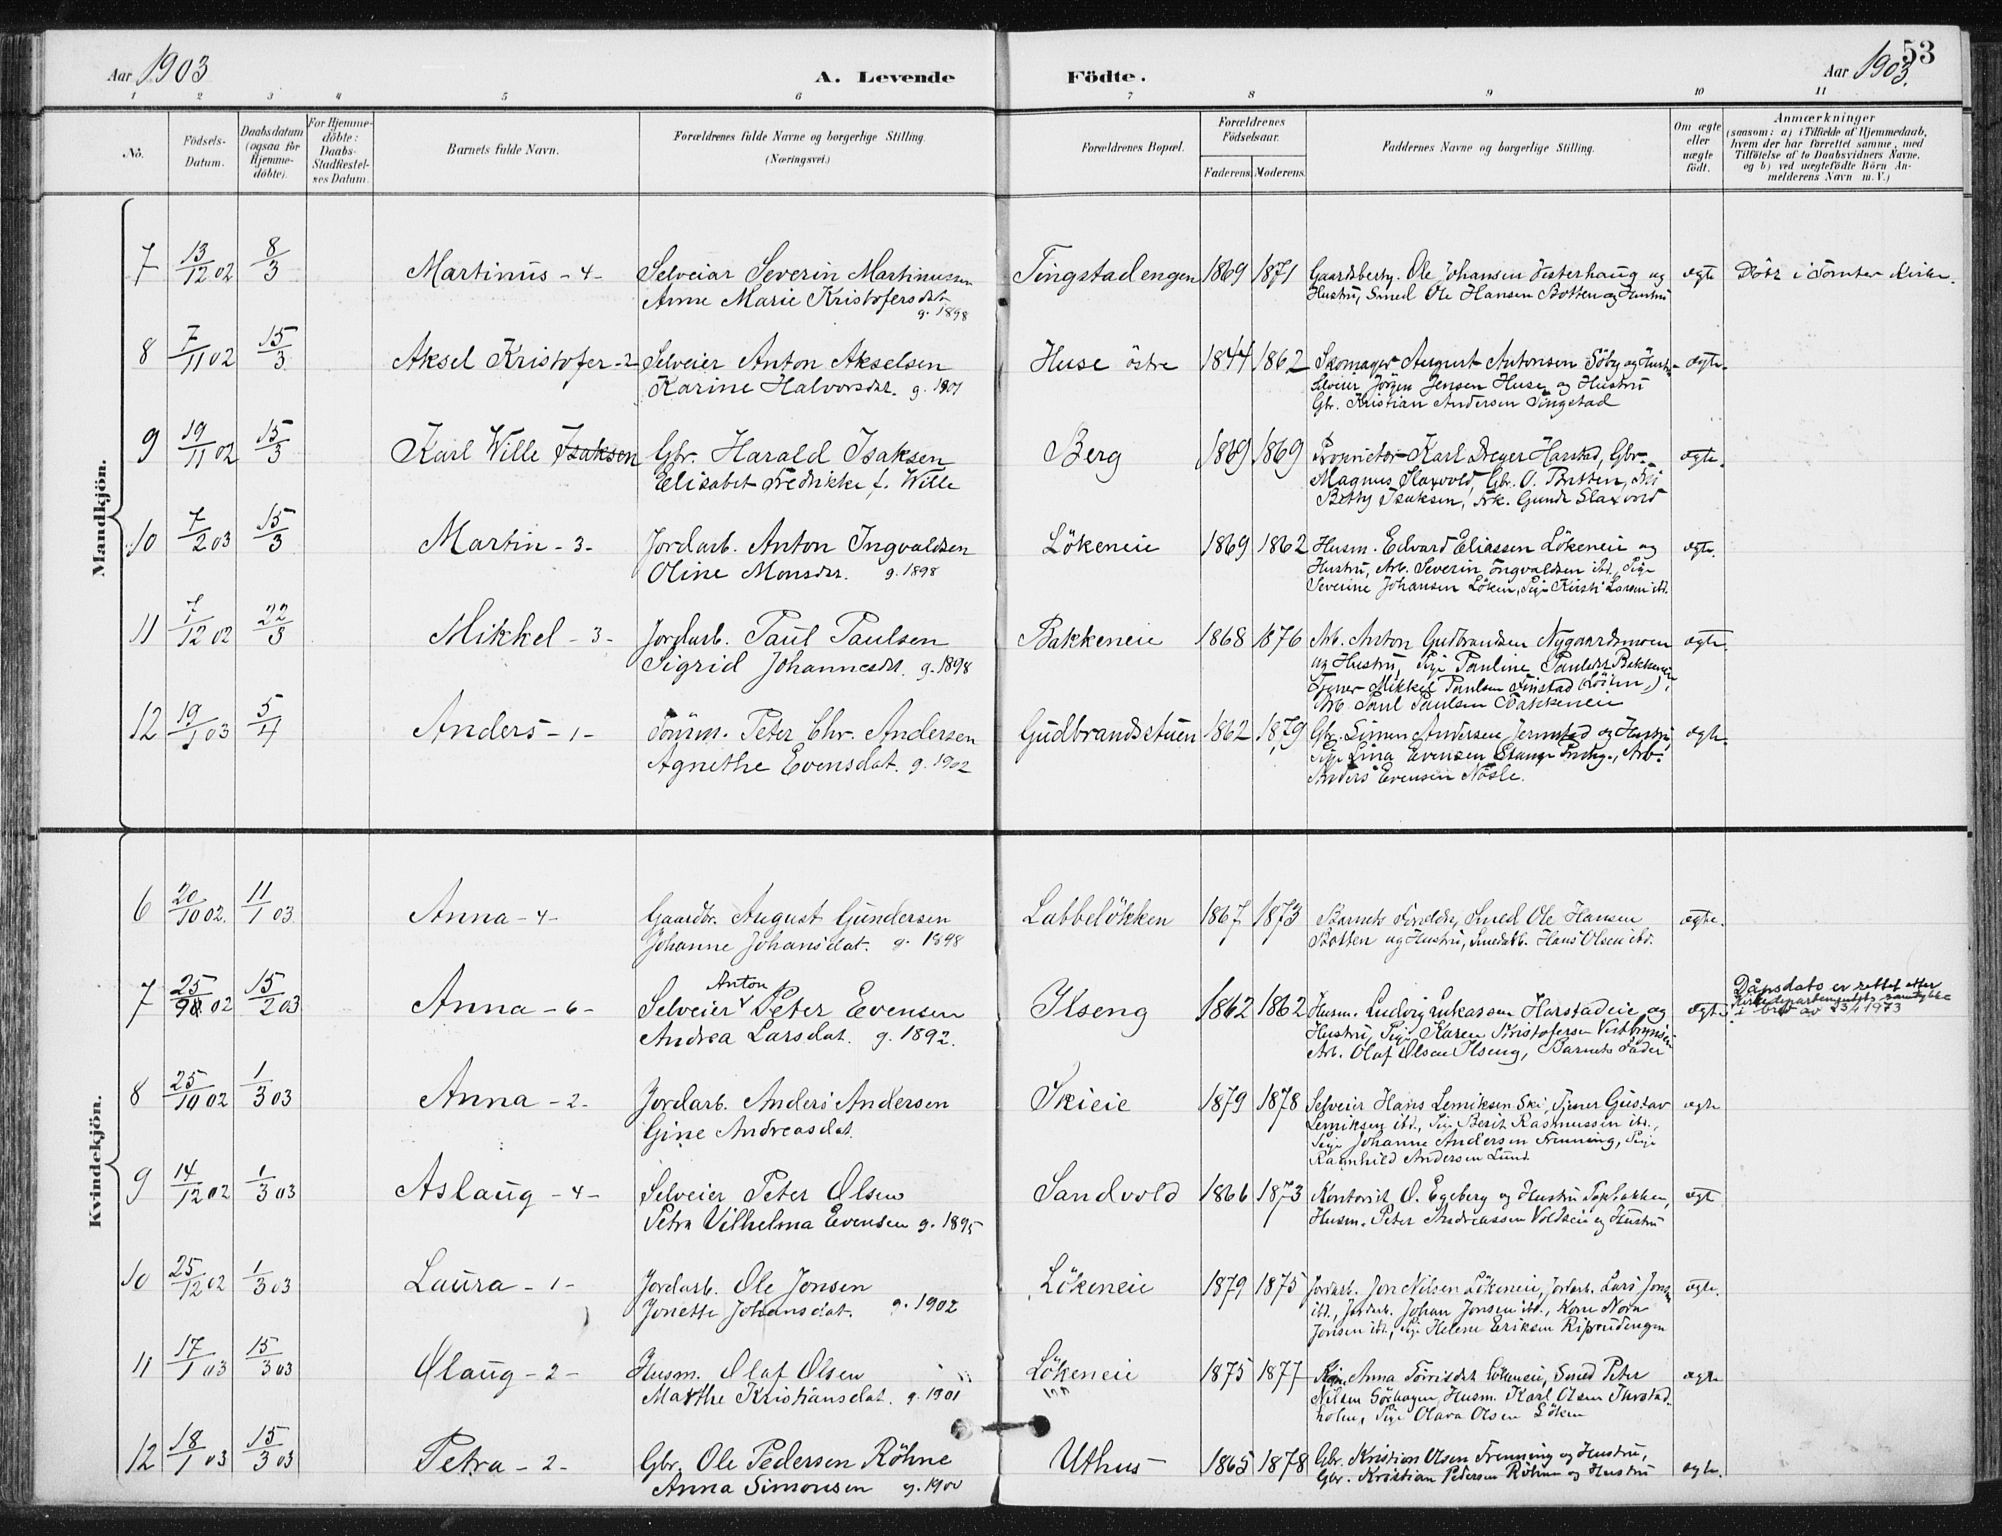 53
Aar 1903
A. Levende
Födte.
Aar 1903.
1 2 3 4 5 6 7 8 9 10 11
No.
Födsels-
Datum.
Daabsdatum
(ogsaa for
Hjemme-
döbte).
For Hjemme-
döbte:
Daabs-
Stadfestel-
ses Datum.
Barnets fulde Navn.
Forældrenes fulde Navne og borgerlige Stilling.
(Næringsvei.)
Forældrenes Bopæl.
Forældrenes
Födselsaar.
Faderens. Moderens.
Faddernes Navne og borgerlige Stilling.
Om ægte
eller
uægte
födt.
Anmærkninger
(saasom: a) i Tilfælde af Hjemmedaab,
hvem der har forrettet samme, med
Tilföielse af to Daabsvidners Navne,
og b) ved uægtefödte Börn An-
melderens Navn m. V.)
Mandkjön.
7 13/12 02 8/3 Martinus - 4 - Selveiar Severin Martinussen Tingstadengen 1869 1871 Gaardsbesty. Ole Johansen Vesterhaug og ægte Döbt i Tomter Kirke.
Anne Marie Kristofersdat. Hustru, Smed Ole Hansen Botten og Hustru
g. 1898
8 7/11 02 15/3 Aksel Kristofer - 2 Selveier Anton Akselsen Huse östre 1844 1862 Skomager August Antonsen Söby og Hustru ægte.
Karine Halvorsdat. g. 1901 Selveier Jörgen Jensen Huse og Hustru
Gbr. Kristian Andersen Tingstad
9 19/11 02 15/3 Karl Wille Isaksen Gbr. Harald Isaksen Berg 1869 1869 Proprietær Karl Dreyer Harstad, Gbr. ægte.
Elisabet Fredrikke f. Wille Magnus Slaxvold, Gbr. O. Bratten,
Betty Isaksen, Frk. Gunda Slaxvold
10 7/2 03 15/3 Martin - 3 - Jordarb. Anton Ingvaldsen Lökeneie 1869 1862 Husm. Edvard Eliassen Lökeneie og ægte.
Oline Monsdat. g. 1898 Hustru, Arb. Severin Ingvaldsen ibd., Pige
Severine Johansen Löken, Pige Kirsti Larsen ibd.
11 7/12 02 22/3 Mikkel - 3 - Jordarb. Paul Paulsen Bakkeneie 1868 1876 Arb. Anton Gudbrandsen Nygaardsmoen ægte.
Sigrid Johannesdat. g. 1898 og Hustru, Pige Pauline Paulsdat Bakkeneie
Tjener Mikkel Paulsen Finstad (Löiten),
Arb. Paul Paulsen Bakkeneie
12 19/1 03 5/4 Anders - 1 - Tömm. Peter Chr. Andersen Gudbrandsstuen 1862 1879 Gbr. Simen Andersen Jernstad og Hustru, ægte.
Agnethe Evensdat. g. 1902 Pige Lina Evensen Stange Prstg., Arb.
Anders Evensen Nösle.
Kvindekjön.
6 20/10 02. 11/1 03. Anna - 4 - Gaardbr. August Gundersen Labbelökken 1867 1873 Barnets Forældre, Smed Ole Hansen ægte.
Johanne Johansdat. g. 1898 Botten og Hustru, Smedarb. Hans Olsen ibd.
Anton
7 25/9 02 15/2 03 Anna - 6 - Selveier Peter Evensen Ilseng 1862 1862 Husm. Ludvig Lukassen Harstadeie og ægte. Dåpsdato er rettet etter
Andrea Larsdat. g. 1892. Hustru, Pige Karen Kristofersen Vestbynsen Kirkedepartementets samtykke
Arb. Olaf Olsen Ilseng, Barnets Fader i brev av 23/1 1973
8 25/10 02 1/3 03 Anna - 2 - Jordarb. Anders Andersen Skieie 1879 1878 Selveier Hans Lemiksen Ski, Tjener Gustav ægte
Gine Andreasdat. Lemiksen ibd., Pige Berit Rasmussen ibd.,
Pige Johanne Andersen Frenning, Pige
Ragnhild Andersen Lund.
9 14/12 02 1/3 03 Aslaug - 4 - Selveier Peter Olsen Sandvold 1866 1873 Kontorist O. Egeberg og Hustru ægt
Petra Vilhelma Evensen g. 1895 Husm. Peter Andreassen Voldseie og Hustru
10 25/12 02 1/3 03 Laura - 1 - Jordarb. Ole Jonsen Lökeneie 1879 1875 Jordarb. Jon Nilsen Lökeneie, Jordarb. Lars Jonsen ægte.
Jonette Johansdat. g. 1902 ibd., Jordarb. Johan Jonsen ibd., Kone Nora
Jonsen ibd., Pige Helene Eriksen Ripsrudengen
11 17/1 03 15/3 03 Olaug - 2 - Husm. Olaf Olsen Lökeneie 1875 1877 Anna Torrisdat Lökeneie, Smed Peter ægte
Marthe Kristiansdat. g. 1901 Nilsen Sörhagen, Husm. Karl Olsen Turstad-
holm, Pige Olava Olsen Löken
12 18/1 03 15/3 03 Petra - 2 - Gbr. Ole Pedersen Röhne Uthus 1865 1878 Gbr. Kristian Olsen Frenning og Hustru, ægte.
Anna Simonsen g. 1900 Gbr. Kristian Pedersen Röhne og Hustru